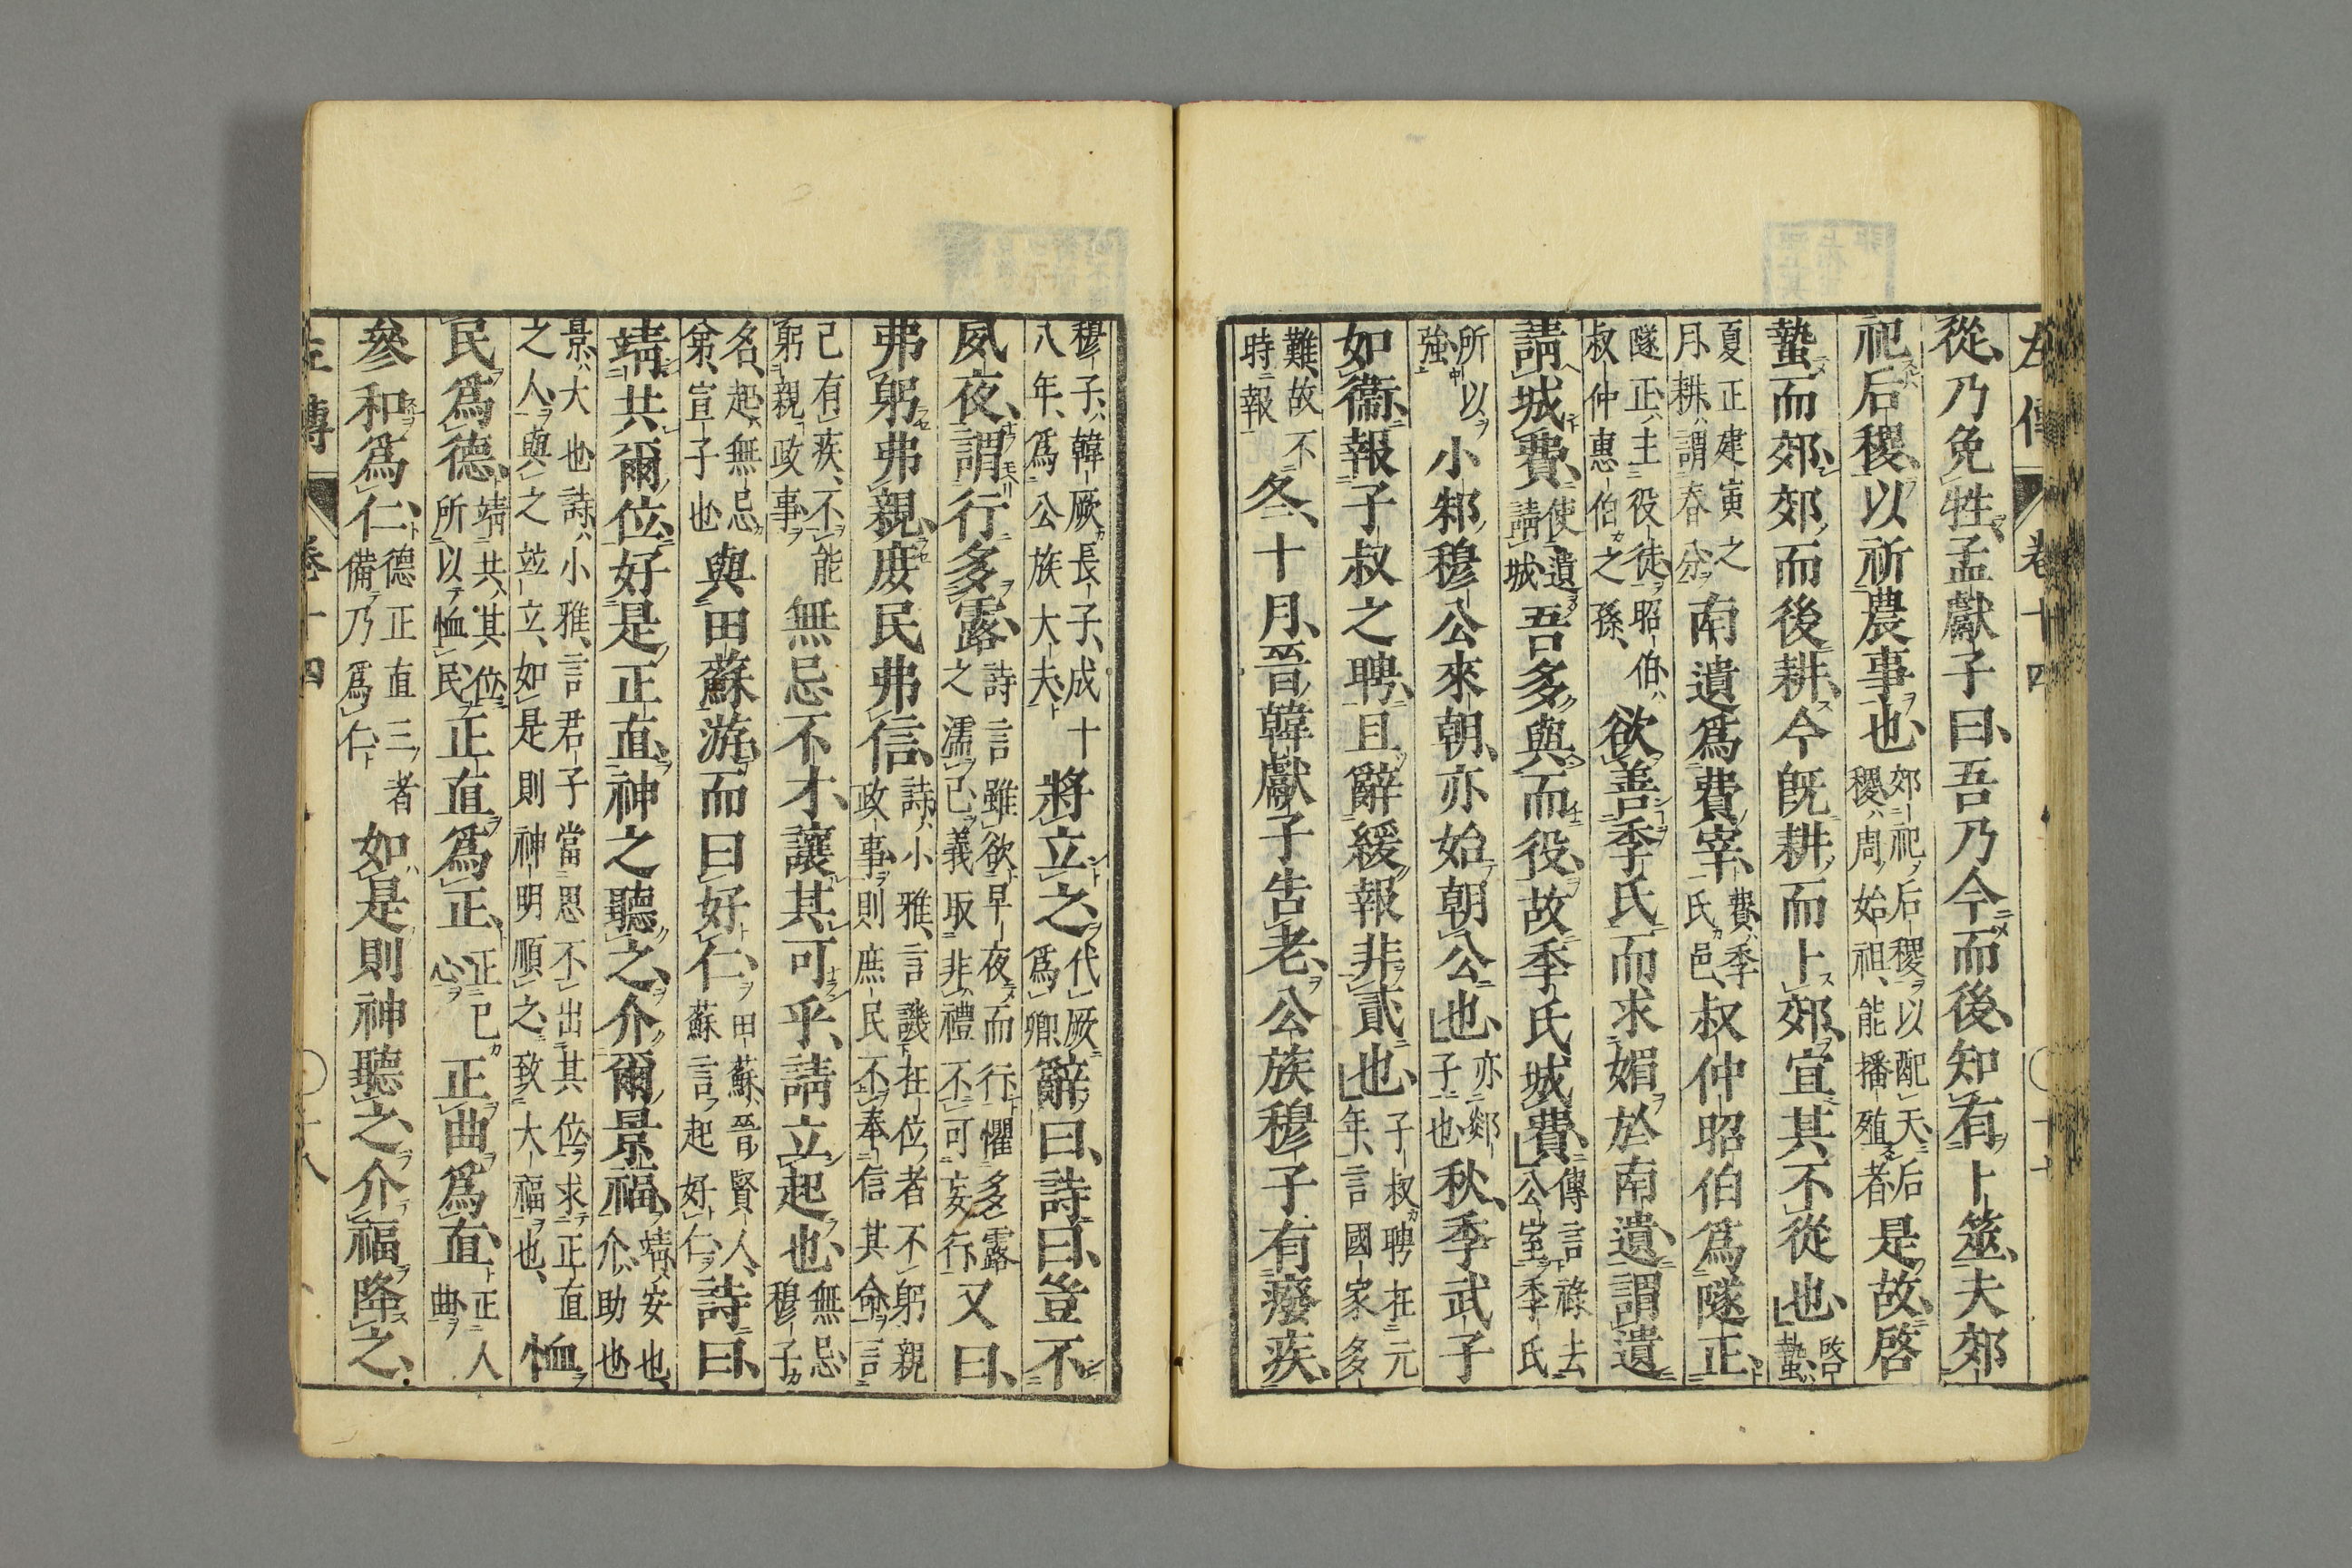 左傳 卷十四
從、乃免牲、孟獻子曰、吾乃今而後、知有卜筮、夫郊
祀后稷、以祈農事也、郊祀后稷以配天、后稷、周始祖、能播殖者是故、啓
蟄而郊、郊而後耕、今既耕而卜郊、宜其不從也、啓蟄、
夏正建寅之月、耕、謂春分南遺爲費宰、費、季氏邑、叔仲昭伯爲隧正、
隧正、主役徒昭伯、叔仲惠伯之孫、欲善季氏而求媚於南遺、謂遺
請城費、使遺請城吾多與而役、故季氏城費、傳言祿去公室季氏
所以強小邾穆公來朝、亦始朝公也、亦郯子也秋、季武子
如衞、報子叔之聘、且辭緩報非貳也、子叔聘在元年、言國家多
難、故不時報冬、十月、晉韓獻子告老、公族穆子有癈疾、
穆子、韓厥長子、成十八年、爲公族大夫將立之、代厥爲卿辭曰、詩曰、豈不
夙夜、謂行多露、詩言雖欲早夜而行懼多露之濡己、義取非禮不可妄行又曰、
弗躬弗親、庻民弗信、詩、小雅、言譏在位者不躬親政事則庶民不奉信其命言
己有疾、不能躬親政事無忌不才、讓其可乎、請立起也、無忌、穆子
名、起、無忌弟、宣子也與田蘇游、而曰好仁、田蘇、晉賢人、蘇言起好仁詩曰、
靖共爾位、好是正直、神之聽之、介爾景福、靖、安也、介、助也
景、大也詩、小雅、言君子當思不出其位、求正直之人、與之竝立、如是則神明順之、致大福也、恤
民爲德、靖共其位、所以恤民正直爲正、正己心正曲爲直、正人曲
參和爲仁、德正直三者備乃爲仁如是則神聽之、介福降之、
左傳 卷十四 十八